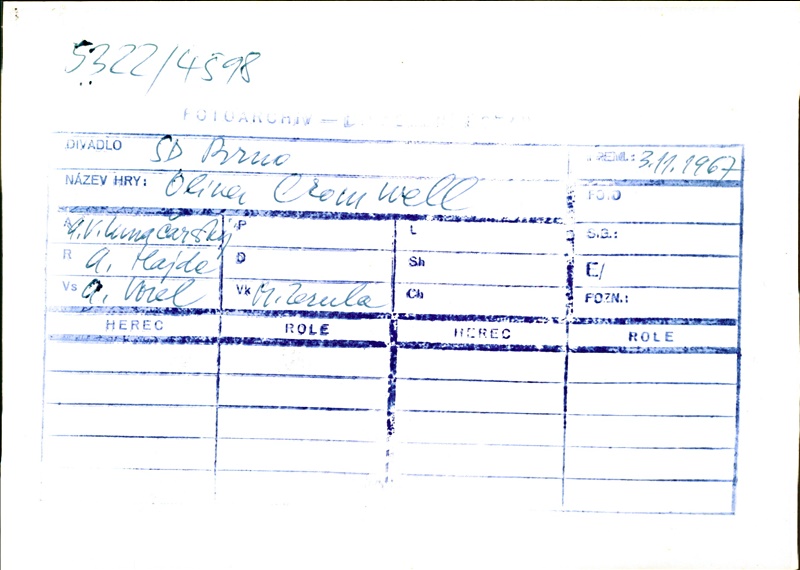 5322/4598
FOTOARCHIV —
DIVADLO SD Brno PREM.: 3.11.1967
NÁZEV HRY: Oliver Cromwell FOTO
A A.V. Lunačarský P L S.B.:
R A. Hajda D Sh E/
Vs A. Vorel Vk M. Zezula Ch POZN.:
HEREC ROLE HEREC ROLE